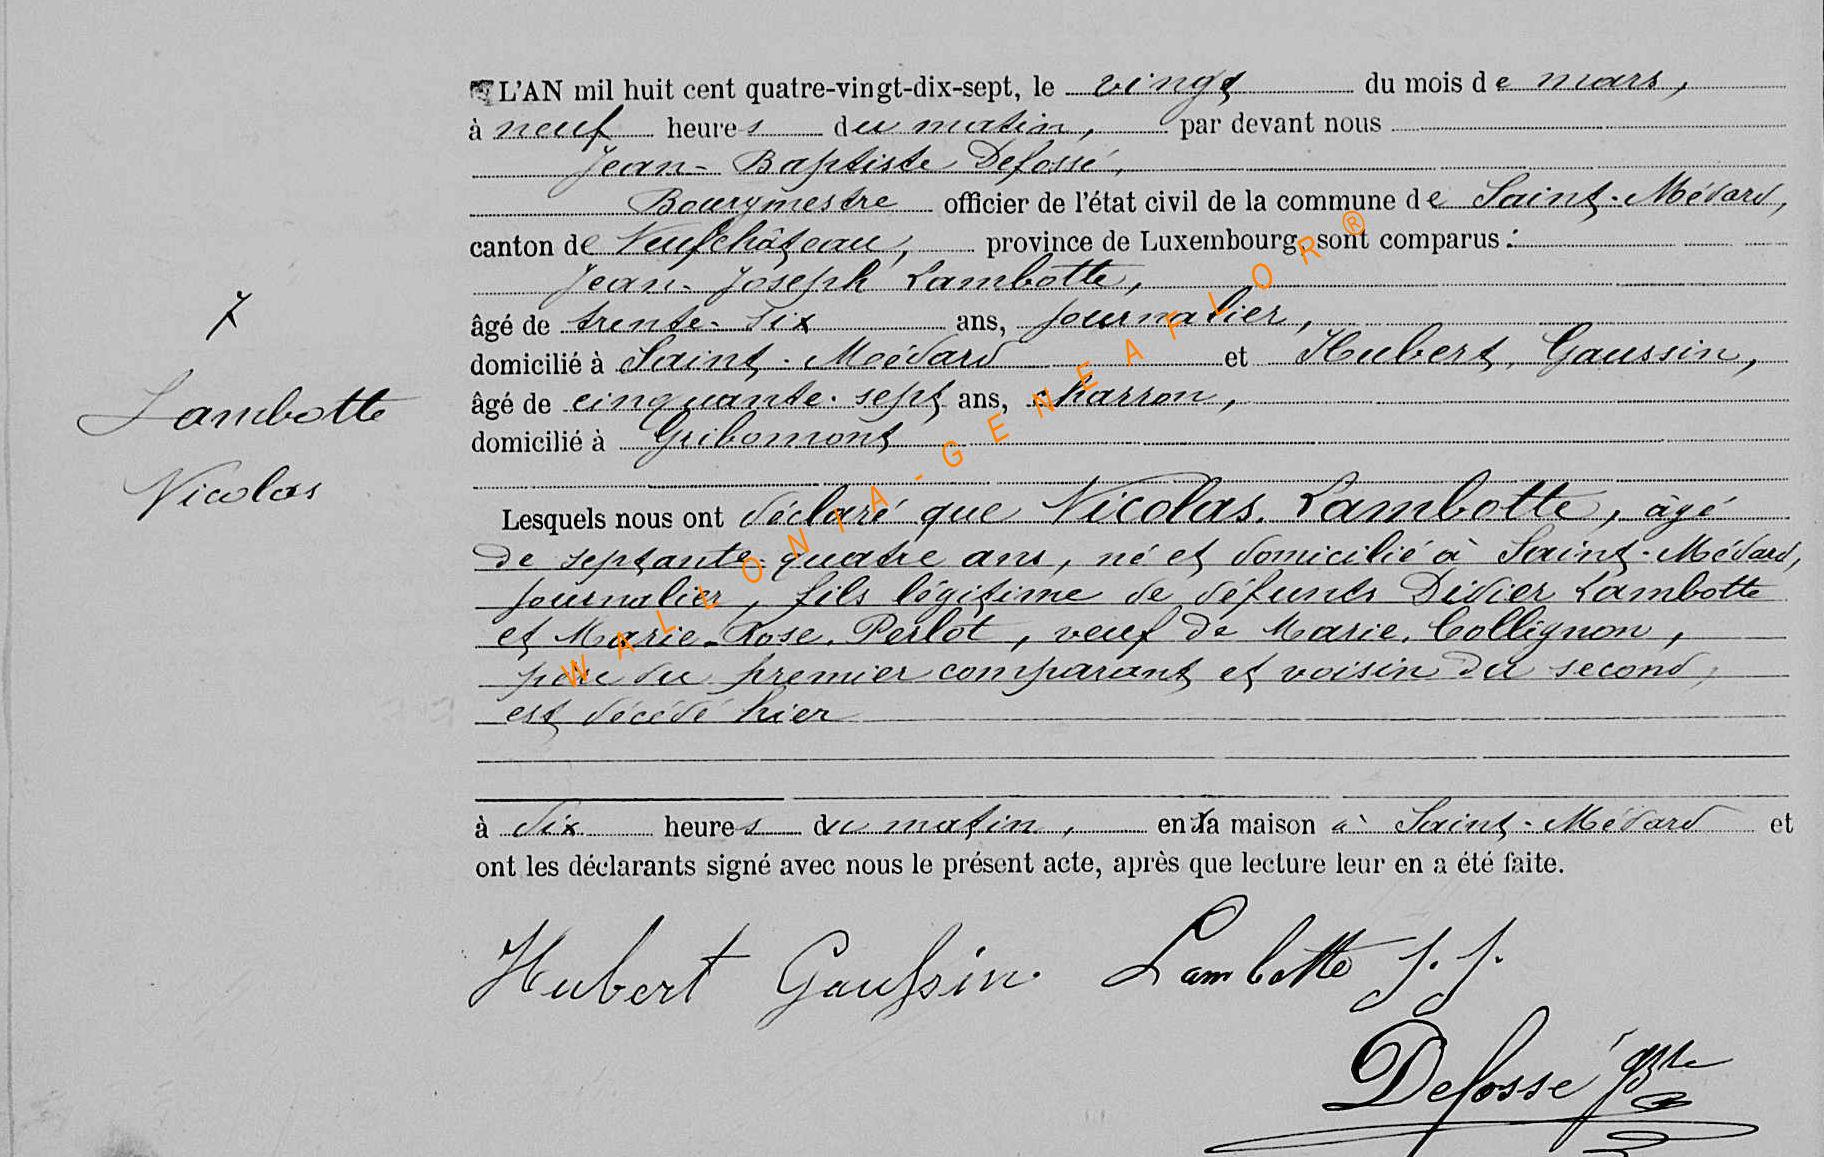 L'AN mil huit cent quatre-vingt-dix-sept, le vingt du mois de mars,
à neuf heures du matin, par devant nous
Jean-Baptiste Defossé,
Bourgmestre officier de l'état civil de la commune de Saint-Médard,
canton de Neufchâteau, province de Luxembourg, sont comparus :
Jean-Joseph Lambotte,
âgé de trente-six ans, journalier,
domicilié à Saint-Médard et Hubert Gaussin,
âgé de cinquante-sept ans, charron,
domicilié à Gribomont
7
Lambotte
Nicolas
Lesquels nous ont déclaré que Nicolas Lambotte, âgé
de septante-quatre ans, né et domicilié à Saint-Médard,
journalier, fils légitime de défunts Didier Lambotte
et Marie-Rose Perlot, veuf de Marie Collignon,
père du premier comparant et voisin du second,
est décédé hier
à dix heures du matin, en sa maison à Saint-Médard et
ont les déclarants signé avec nous le présent acte, après que lecture leur en a été faite.
Hubert Gaussin Lambotte J. J.
Defossé JBte
WALLONIA-GENEAFLOR®